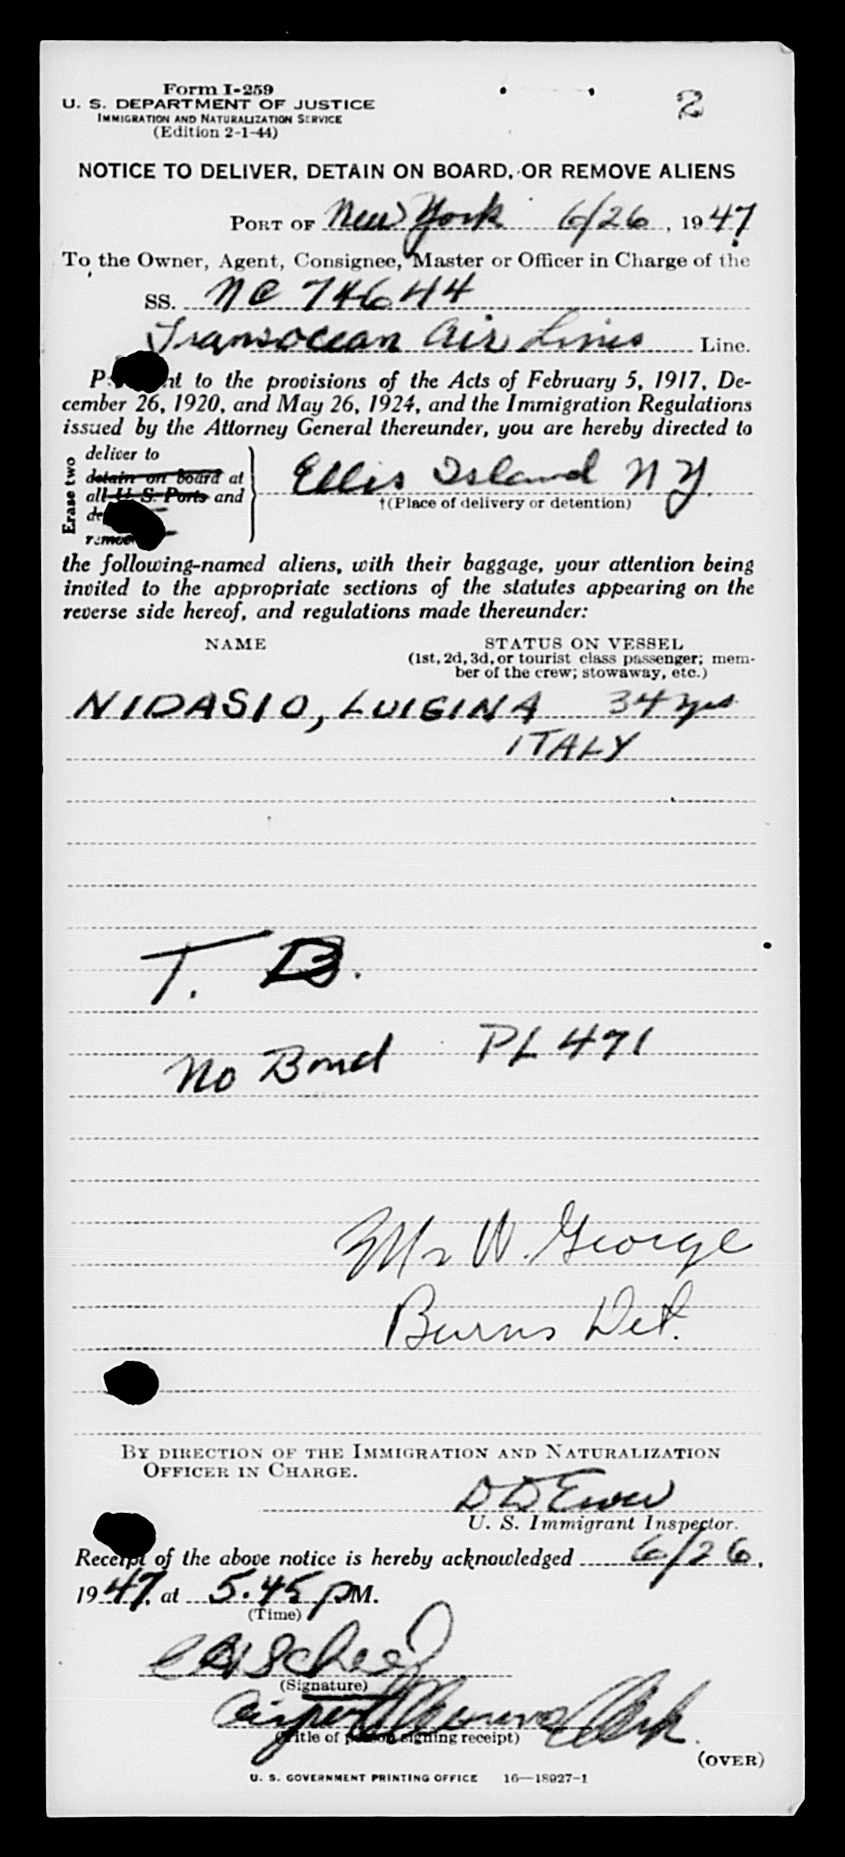 Form I-259
U. S. DEPARTMENT OF JUSTICE
IMMIGRATION AND NATURALIZATION SERVICE
(Edition 2-1-44)
2
NOTICE TO DELIVER, DETAIN ON BOARD, OR REMOVE ALIENS
PORT OF New York 6/26, 1947
To the Owner, Agent, Consignee, Master or Officer in Charge of the
SS. NC 74644
Transocean Air Lines Line.
to the provisions of the Acts of February 5, 1917, De-
cember 26, 1920, and May 26, 1924, and the Immigration Regulations
issued by the Attorney General thereunder, you are hereby directed to
Erase two
deliver to
detain on board at
all U. S. Ports and
Ellis Island N Y.
†(Place of delivery or detention)
the following-named aliens, with their baggage, your attention being
invited to the appropriate sections of the statutes appearing on the
reverse side hereof, and regulations made thereunder:
NAME STATUS ON VESSEL
(1st, 2d, 3d, or tourist class passenger; mem-
ber of the crew; stowaway, etc.)
NIDASIO, LUIGINA 34 yrs
ITALY
T. B.
No Bond PL 471
Mr W. George
Burns Det.
BY DIRECTION OF THE IMMIGRATION AND NATURALIZATION
OFFICER IN CHARGE.
U. S. Immigrant Inspector.
Receipt of the above notice is hereby acknowledged 6/26,
1947, at 5.45 PM.
(Time)
(Signature)
Airport Clerk
(Title of person signing receipt)
(OVER)
U. S. GOVERNMENT PRINTING OFFICE 16—18927-1